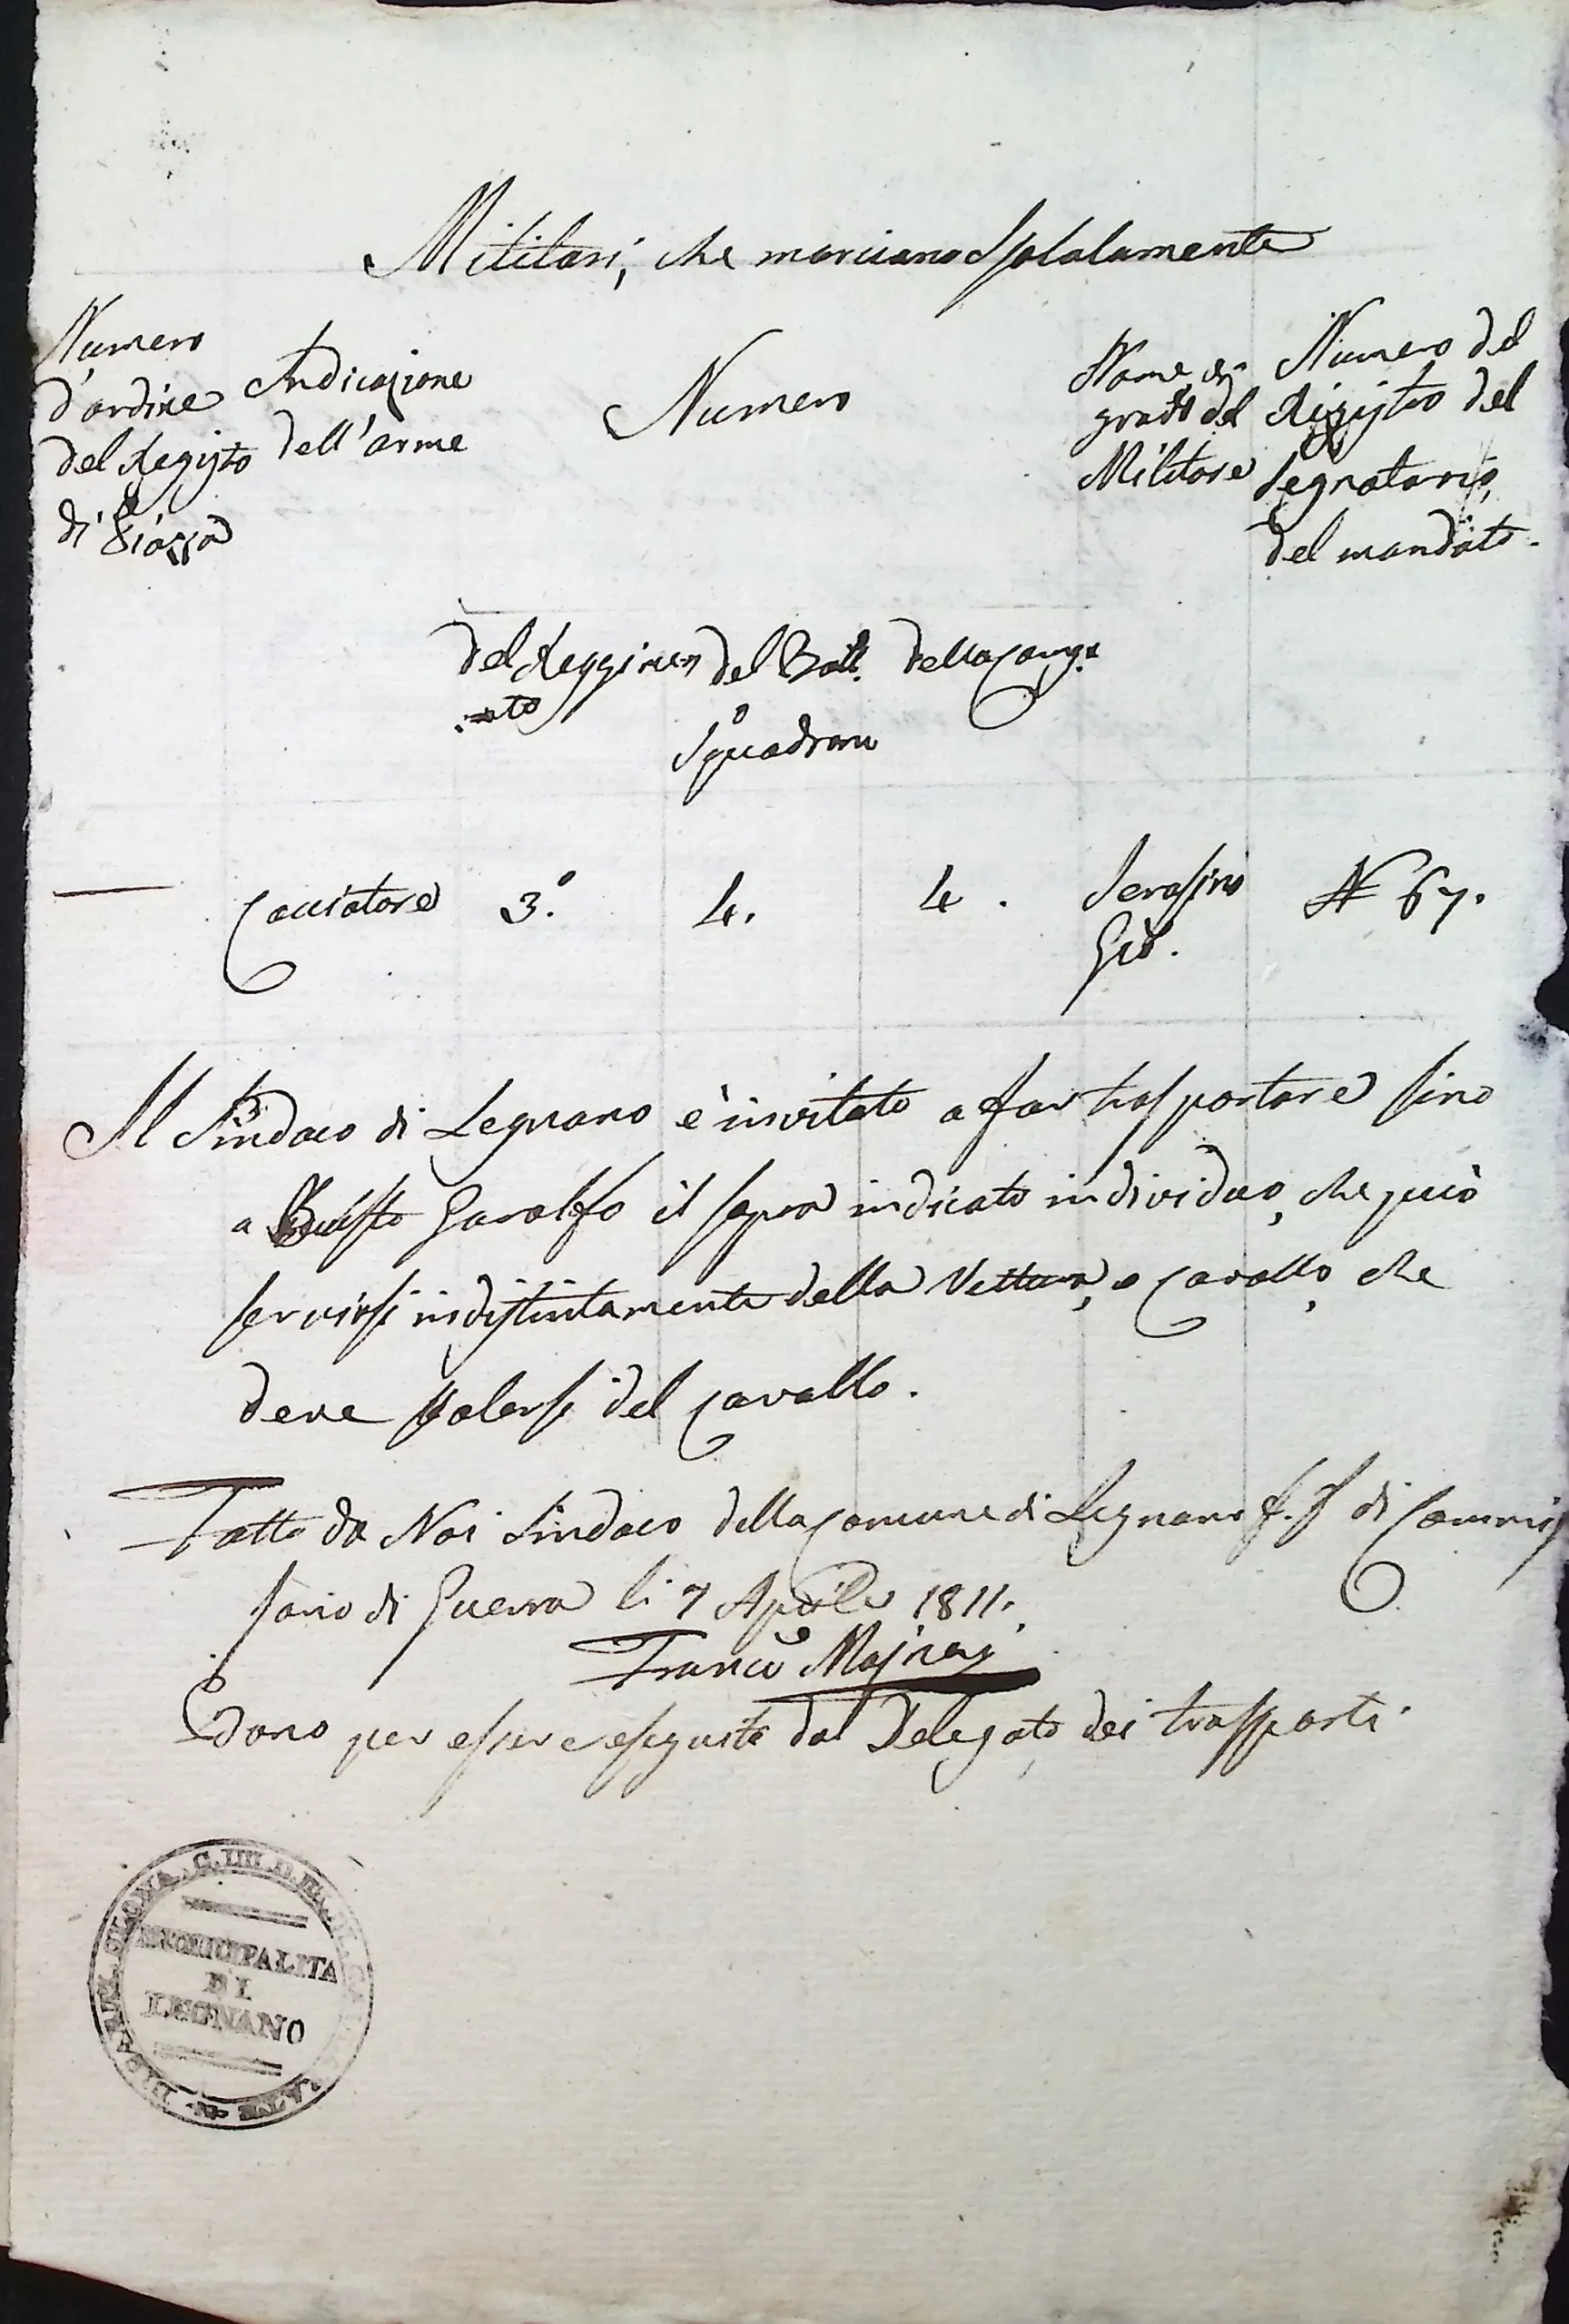 Militari, che marciano Isolatamente
Numero
d'ordine
del Registo
di Piazza
Indicazione
dell'arme
Numero
Nome, e
grado del
Militare
Numero del
Registro del
Segnatario,
del mandato.
del Reggimen
to
del Batt.
o
Squadrone
della Comp.a
Cacciatore 3.o 4. 4. Serafino
Gio. N 67.
Il Sindaco di Legnano è invitato a far trasportare sino
a Busto Garolfo il sopra indicato individuo, che può
servirsi indistintamente della Vettura, o Cavallo, che
deve valersi del Cavallo.
Fatto da Noi Sindaco della Comune di Legnano f.f di Commis
sario di Guerra li 7 Aprile 1811.
Franco
dano per essere eseguito dal Delegato dei trasporti.
MUNICIPALITA
DI
LEGNANO